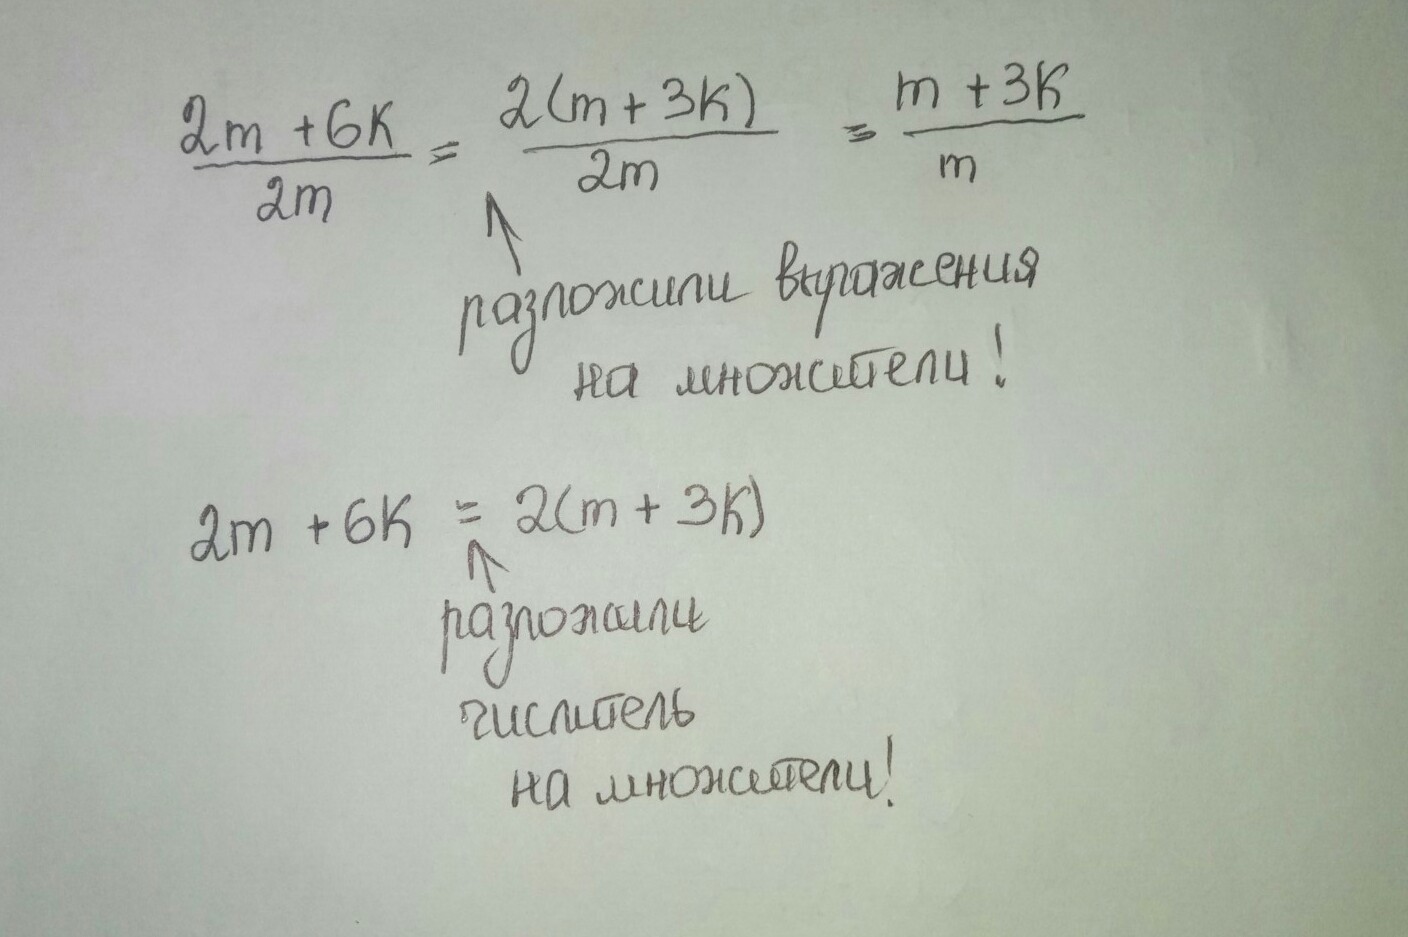 2m + 6K / 2m = 2(m + 3K) / 2m = m + 3K / m
разложили выражения
на множители!
2m + 6K = 2(m + 3K)
разложили
числитель
на множители!